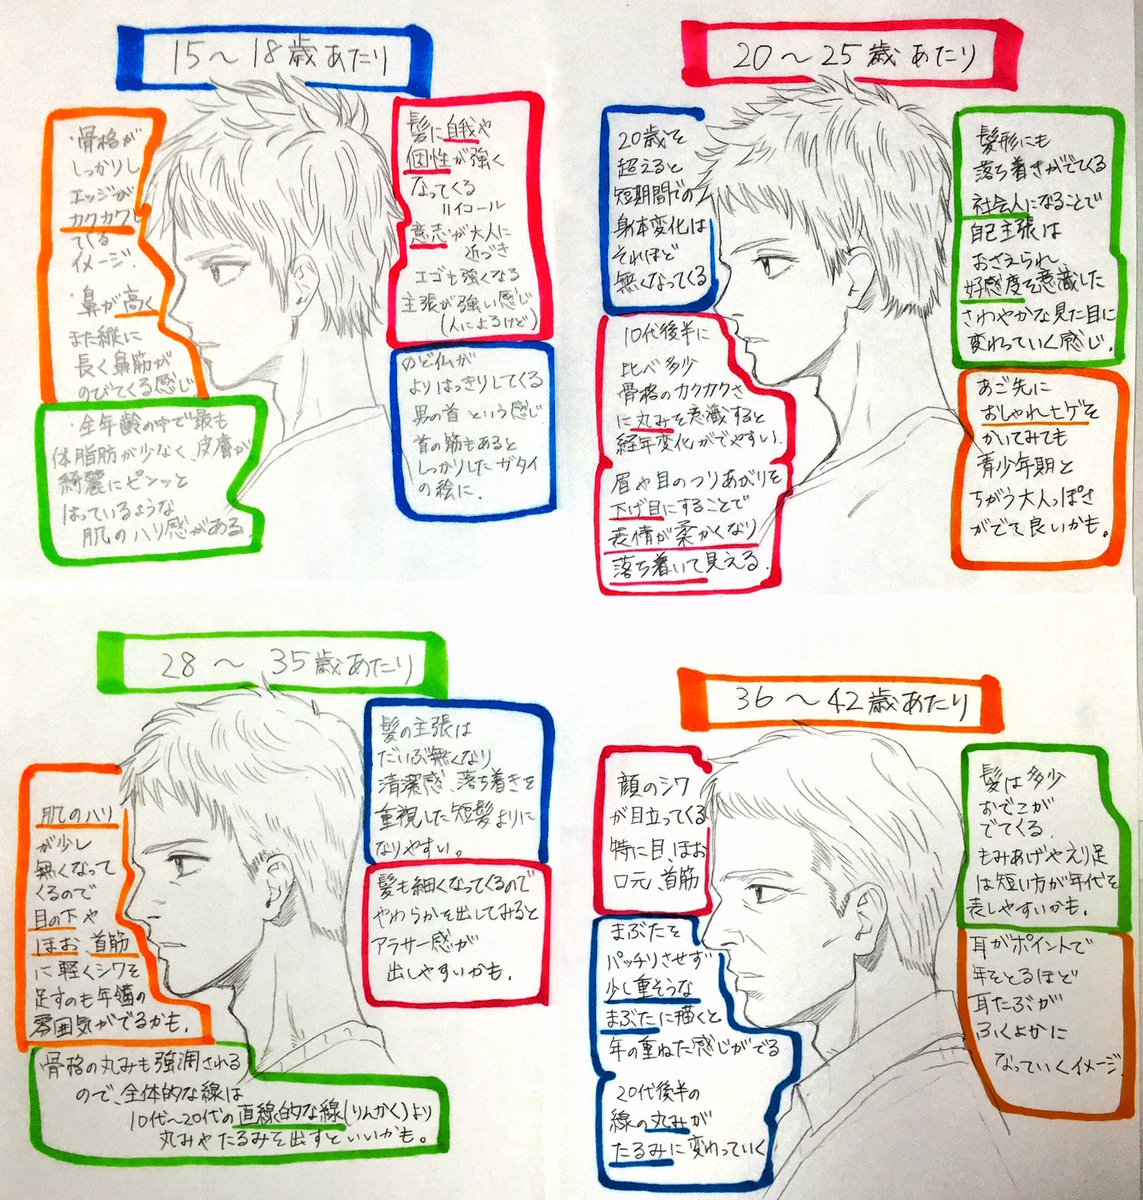 15～18歳あたり
・骨格が
しっかりし
エッジが
カクカクし
てくる
イメージ.
・鼻が高く
また縦に
長く鼻筋が
のびてくる感じ
髪に自我や
個性が強く
なってくる
〃イコール
意志が大人に
近づき
エゴも強くなる
主張が強い感じ
(人によるけど)
のど仏が
よりはっきりしてくる
男の首という感じ
首の筋もあると
しっかりしたガタイ
の絵に.
・全年齢の中で最も
体脂肪が少なく、皮膚が
綺麗にピンッと
はっているような
肌のハリ感がある.
20～25歳あたり
20歳を
超えると
短期間での
身体変化は
それほど
無くなってくる
10代後半に
比べ多少
骨格のカクカクさ
に丸みを意識すると
経年変化がでやすい.
眉や目のつりあがりを
下げ目にすることで
表情が柔かくなり
落ち着いて見える.
髪形にも
落ち着きがでてくる
社会人になることで
自己主張は
おさえられ、
好感度を意識した
さわやかな見た目に
変わっていく感じ.
あご先に
おしゃれヒゲを
かいてみても
青少年期と
ちがう大人っぽさ
がでて良いかも。
28～35歳あたり
肌のハリ
が少し
無くなって
くるので
目の下や
ほお、首筋
に軽くシワを
足すのも年齢の
雰囲気がでるかも.
髪の主張は
だいぶ無くなり
清潔感、落ち着きを
重視した短髪よりに
なりやすい。
髪も細くなってくるので
やわらかを出してみると
アラサー感が
出しやすいかも.
骨格の丸みも強調される
ので、全体的な線は
10代～20代の直線的な線(りんかく)より
丸みやたるみを出すといいかも。
36～42歳あたり
顔のシワ
が目立ってくる
特に目、ほお
口元、首筋
まぶたを
パッチリさせず
少し重そうな
まぶたに描くと
年の重ねた感じがでる
20代後半の
線の丸みが
たるみに変わっていく
髪は多少
おでこが
でてくる.
もみあげやえり足
は短い方が年代を
表しやすいかも.
耳がポイントで
年をとるほど
耳たぶが
ふくよかに
なっていくイメージ.